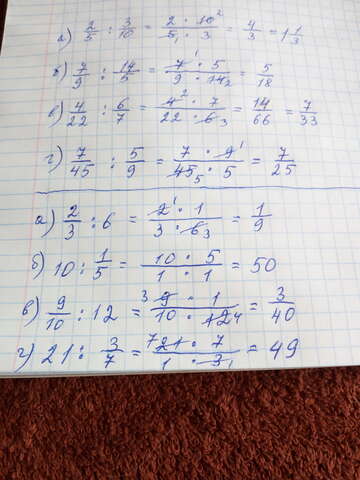 а) 2/5 : 3/10 = 2 · 10² / 5₁ · 3 = 4/3 = 1 1/3
б) 7/9 : 14/5 = 7¹ · 5 / 9 · 14₂ = 5/18
в) 4/22 : 6/7 = 4² · 7 / 22 · 6₃ = 14/66 = 7/33
г) 7/45 : 5/9 = 7 · 9¹ / 45₅ · 5 = 7/25
а) 2/3 : 6 = 2¹ · 1 / 3 · 6₃ = 1/9
б) 10 : 1/5 = 10 · 5 / 1 · 1 = 50
в) 9/10 : 12 = ³9 · 1 / 10 · 12₄ = 3/40
г) 21 : 3/7 = ⁷21 · 7 / 1 · 3₁ = 49